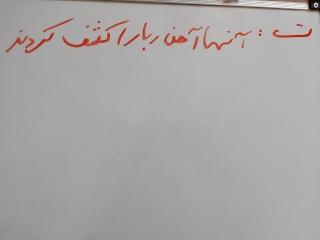 ت : آنها آهن ربا را کشف کردند